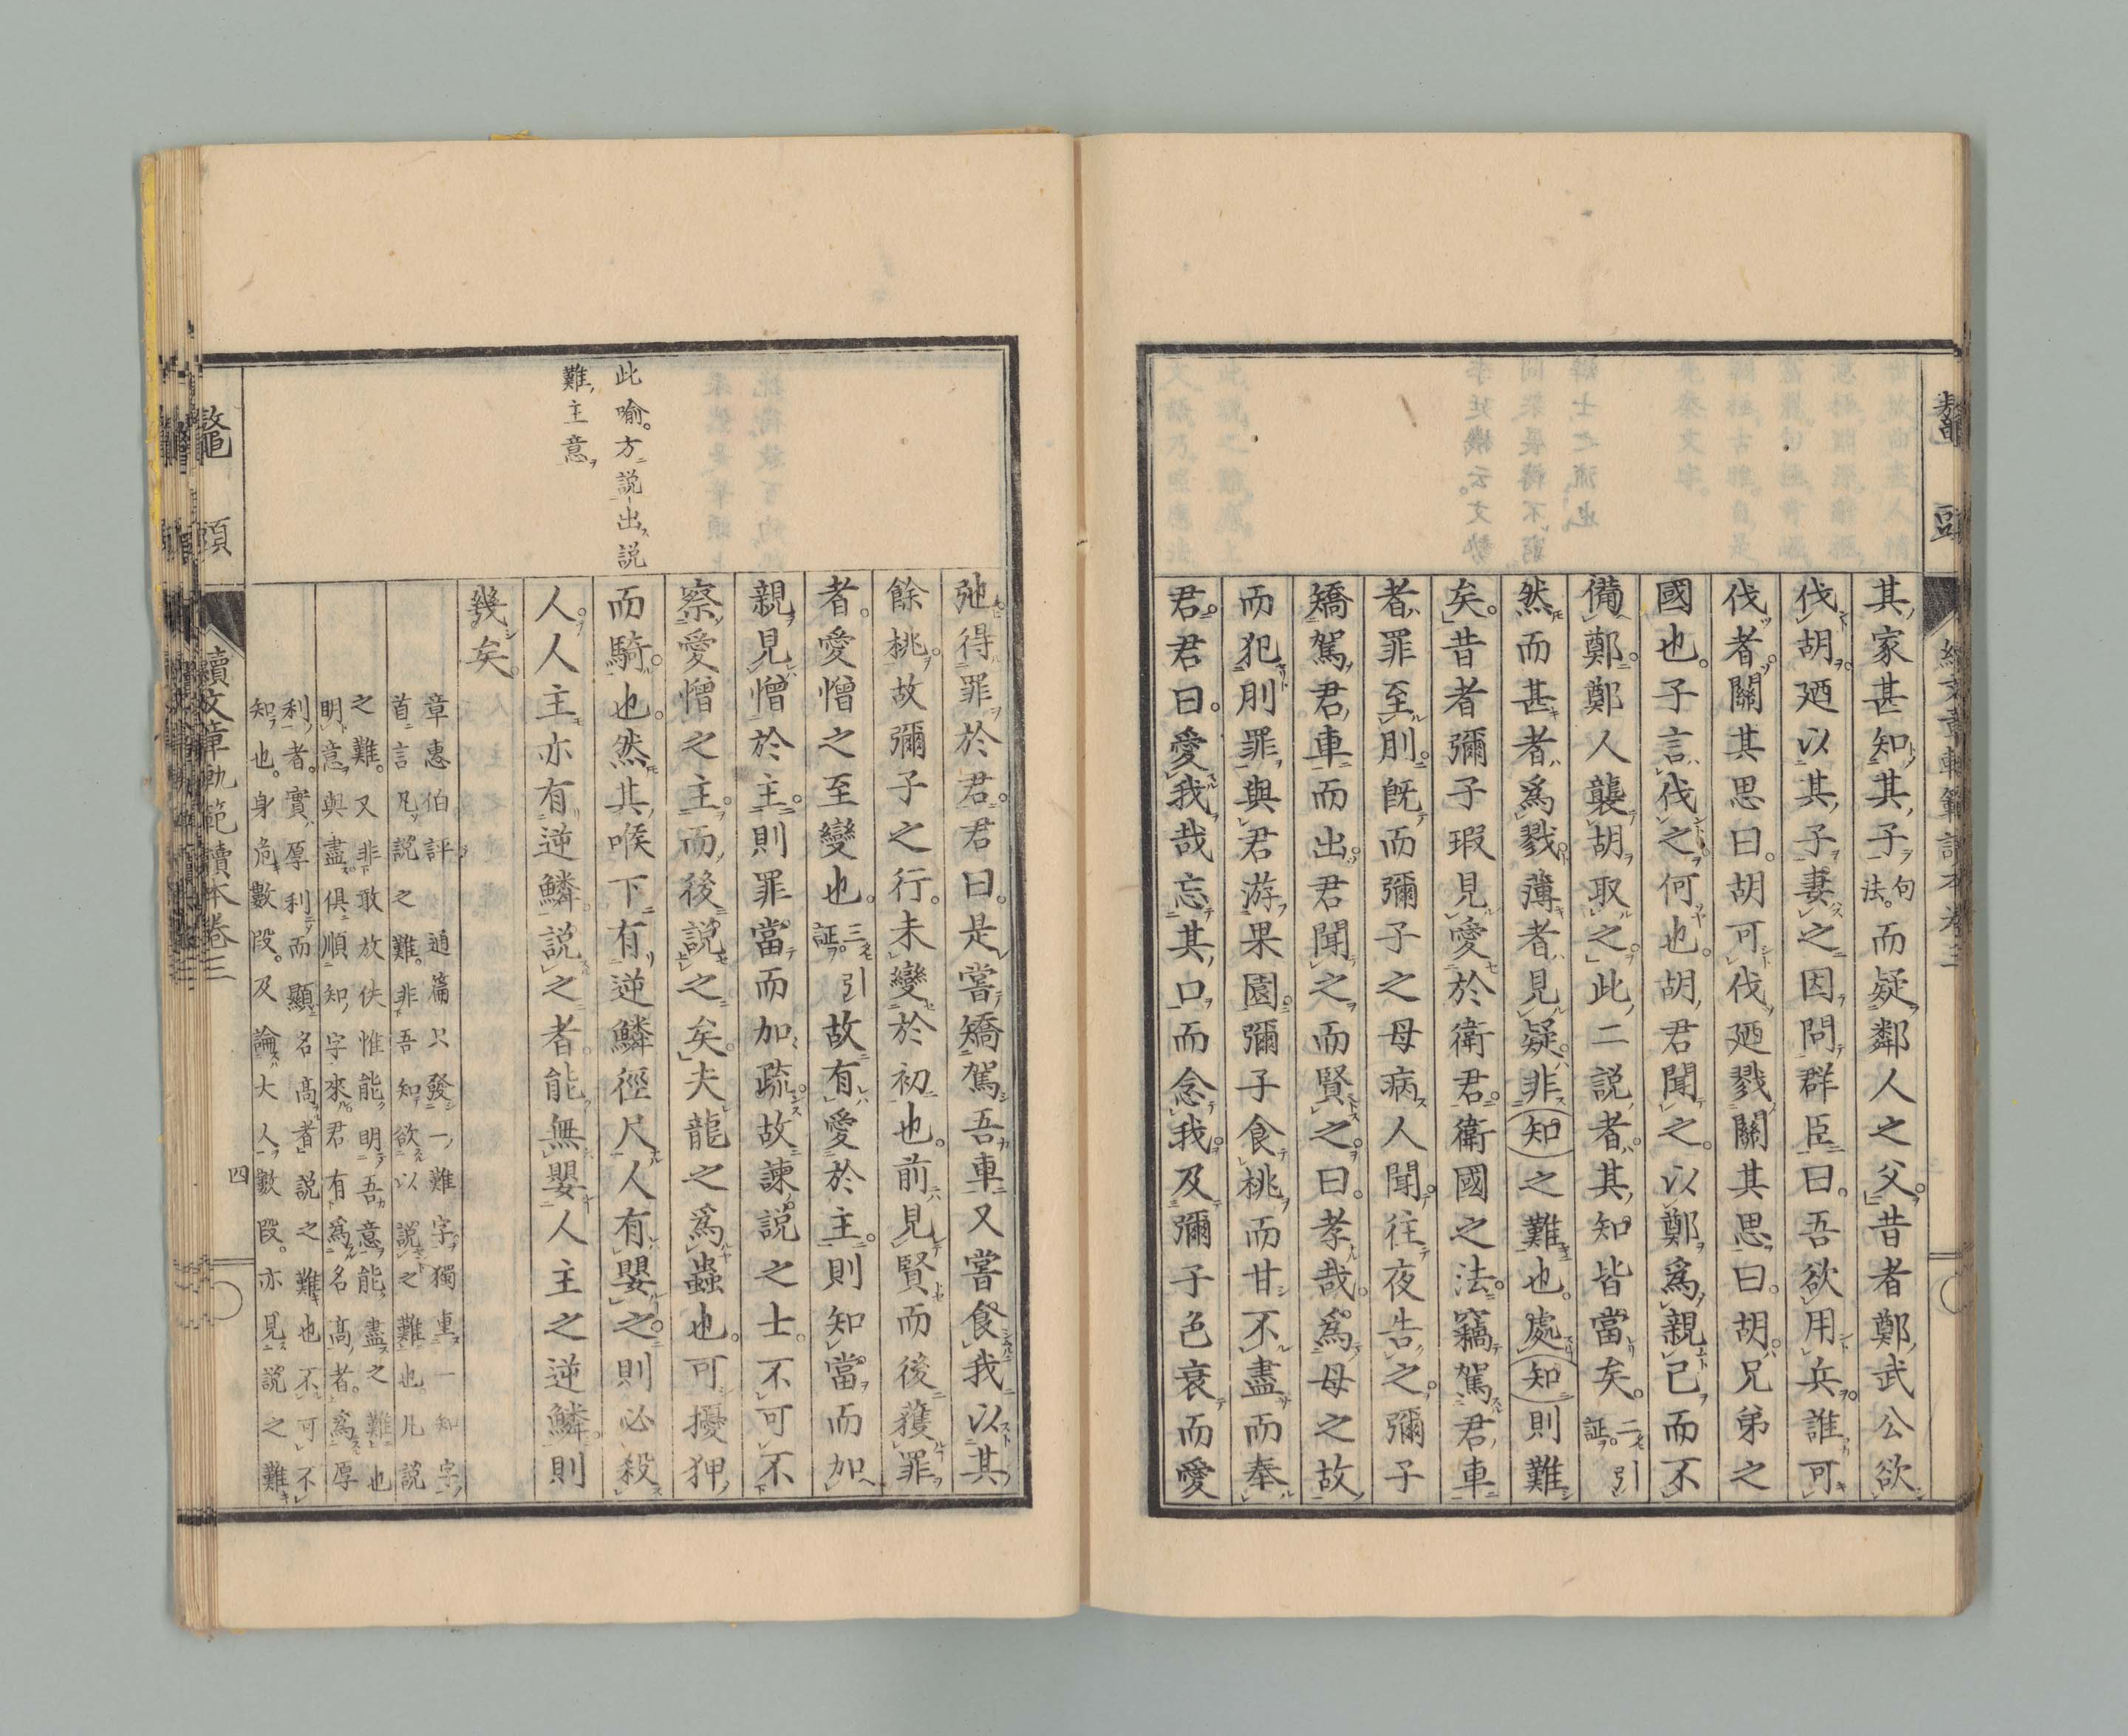 鼇頭
續文章軌範讀本卷三
其家甚知其子句法。而疑鄰人之父。昔者鄭武公欲
伐胡。廼以其子妻之因問群臣曰。吾欲用兵。誰可
伐者。關其思曰。胡可伐廼戮關其思曰。胡兄弟之
國也。子言伐之。何也。胡君聞之。以鄭爲親已而不
備鄭。鄭人襲胡取之。此二説者其知皆當矣。二引証。
然而甚者爲戮。薄者見疑。非知之難也。處知則難
矣。昔者彌子瑕見愛於衛君。衛國之法。竊駕君車
者罪至刖。既而彌子之母病人聞。往夜告之。彌子
矯駕君車而出。君聞之而賢之。曰。孝哉。爲母之故
而犯刖罪與君游果園。彌子食桃而甘不盡而奉
君。君曰。愛我哉忘其口而念我。及彌子色衰而愛
弛得罪於君。君曰。是嘗矯駕吾車又嘗食我以其
餘桃。故彌子之行。未變於初也。前見賢而後獲罪
者。愛憎之至變也。三引証。故有愛於主。則知當而加
親見憎於主。則罪當而加疏。故諫説之士。不可不
察愛憎之主。而後説之矣。夫龍之爲蟲也。可擾狎
而騎。也。然其喉下有逆鱗徑尺人有嬰之。則必殺
人。人主亦有逆鱗。説之者。能無嬰人主之逆鱗。則
幾矣。
此喻。方説出説
難主意
章惠伯評　通篇只發一難字獨重一知字
首言凡説之難。非吾知欲以説之難也。凡説
之難。又非敢放佚惟能明吾意能盡之難也
明意與盡。俱順知字來君有爲名高者。爲厚
利者。實厚利而顯名高者説之難也不可不
知也。身危數段。及論大人數段。亦見説之難
鼇頭
續文章軌範讀本卷三
四